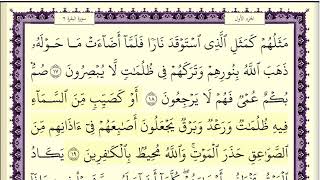 الجزء الأول
سورة البقرة ٢
مَثَلُهُمْ كَمَثَلِ ٱلَّذِى ٱسْتَوْقَدَ نَارًا فَلَمَّآ أَضَآءَتْ مَا حَوْلَهُۥ
ذَهَبَ ٱللَّهُ بِنُورِهِمْ وَتَرَكَهُمْ فِى ظُلُمَٰتٍ لَّا يُبْصِرُونَ ١٧ صُمٌّۢ
بُكْمٌ عُمْىٌ فَهُمْ لَا يَرْجِعُونَ ١٨ أَوْ كَصَيِّبٍ مِّنَ ٱلسَّمَآءِ
فِيهِ ظُلُمَٰتٌ وَرَعْدٌ وَبَرْقٌ يَجْعَلُونَ أَصَٰبِعَهُمْ فِىٓ ءَاذَانِهِم مِّنَ
ٱلصَّوَٰعِقِ حَذَرَ ٱلْمَوْتِ ۚ وَٱللَّهُ مُحِيطٌۢ بِٱلْكَٰفِرِينَ ١٩ يَكَادُ